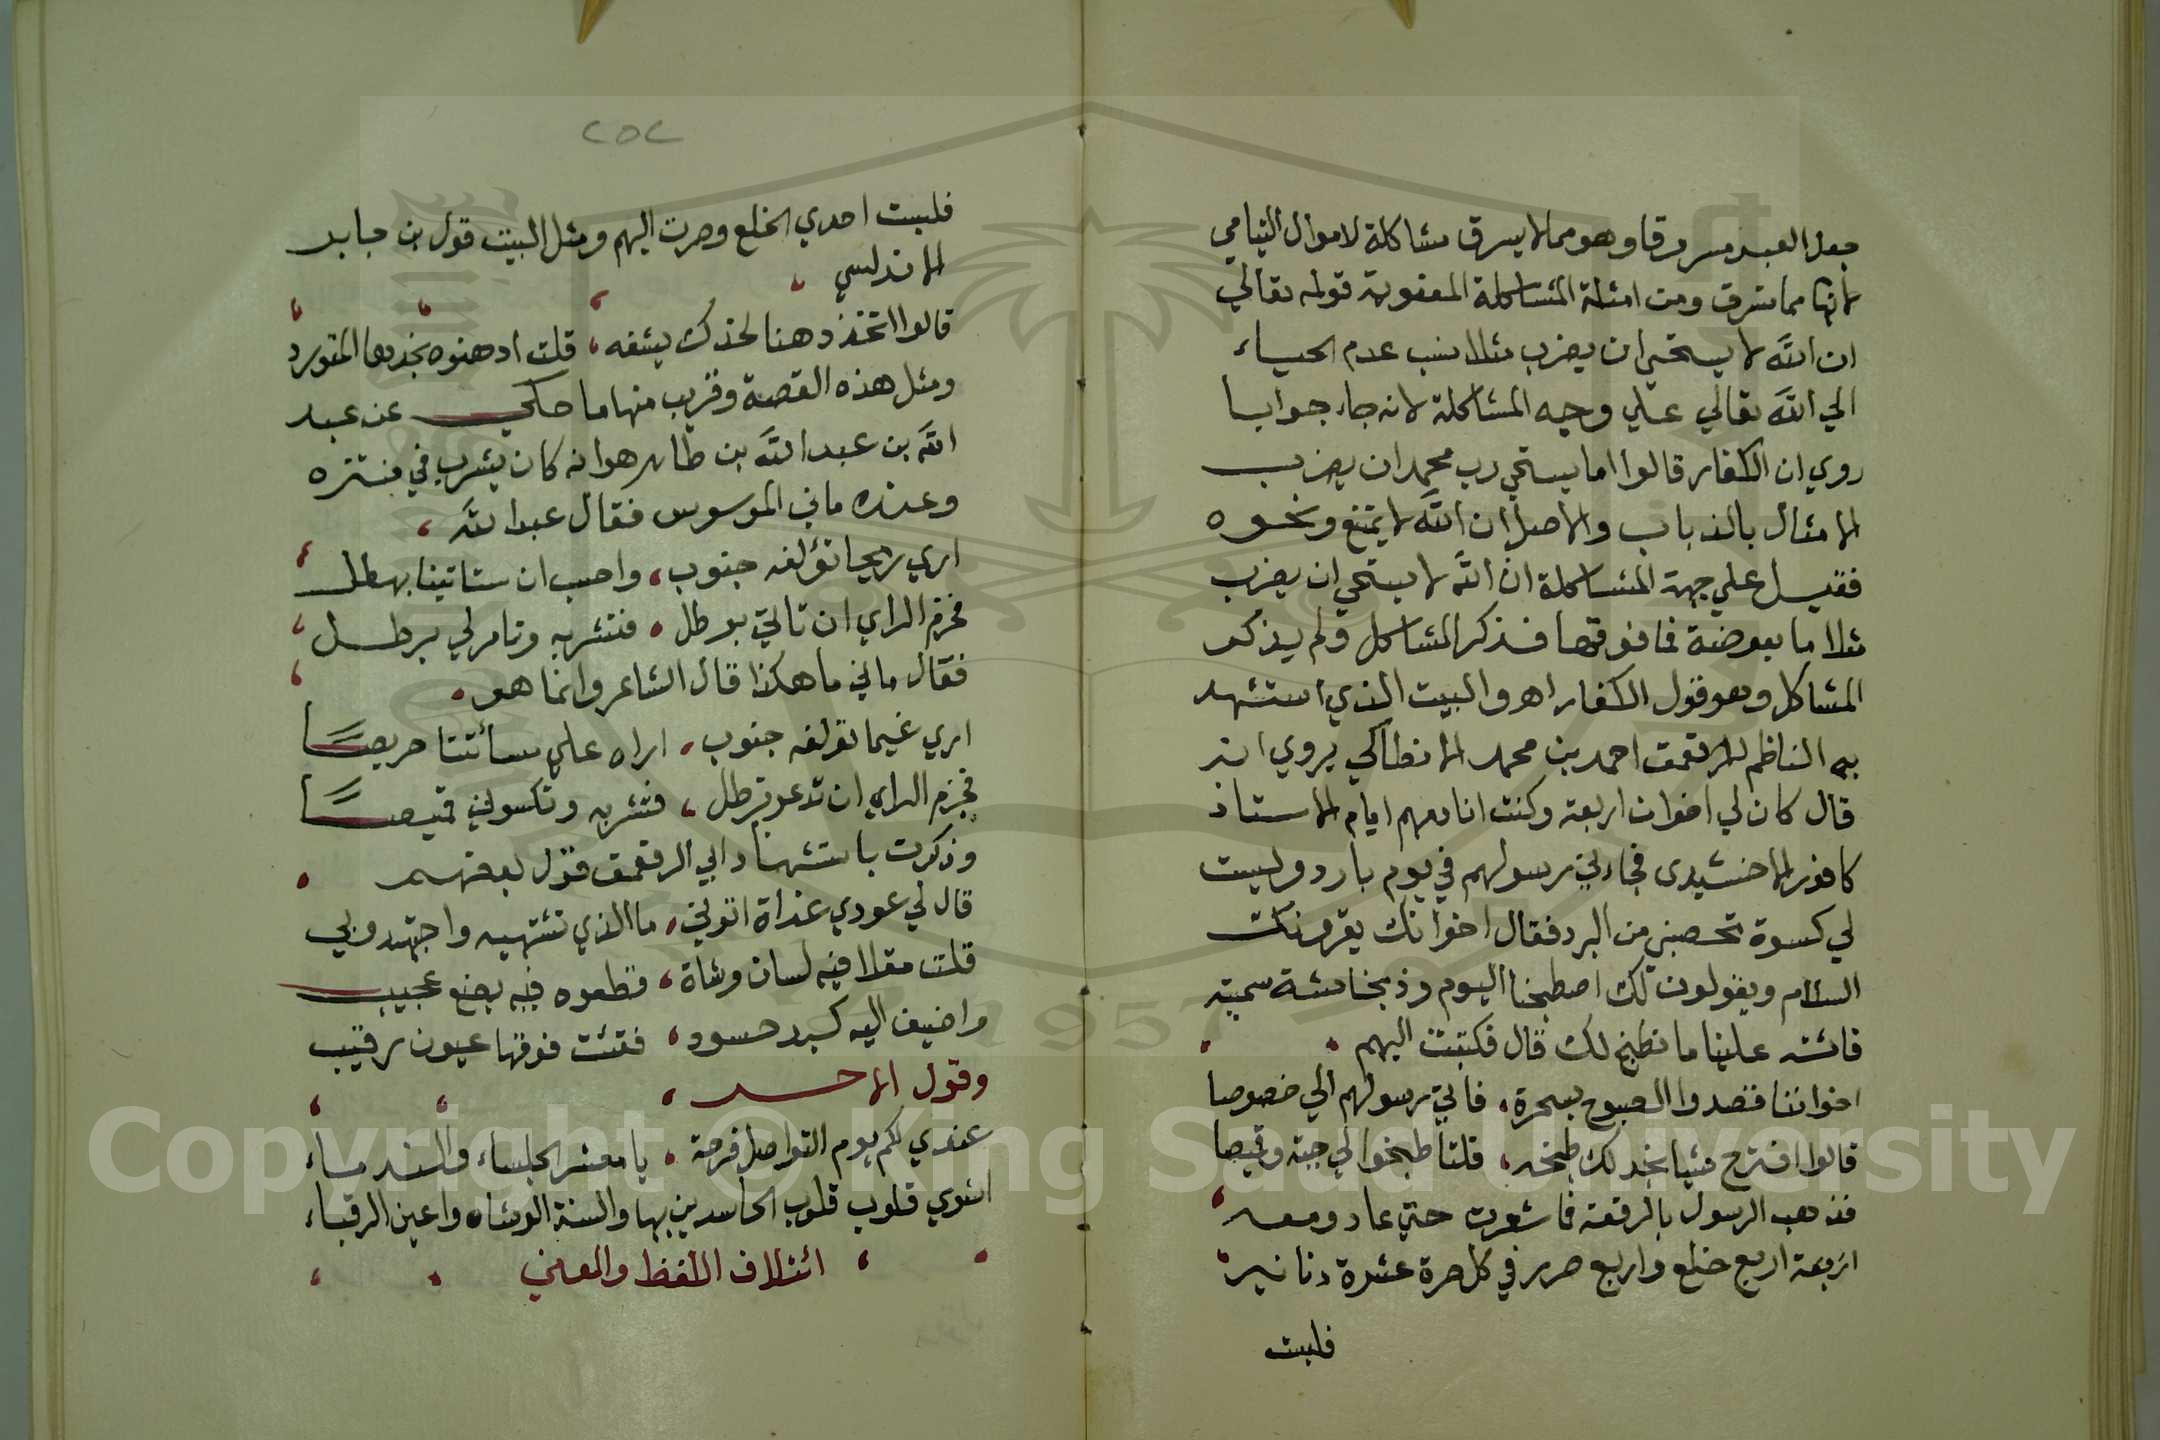 جعل العبد مسروقا وهو مما لا يسرق مشاكلة لاموال اليتامي
لانها مما تسرق ومن امثلة المشاكلة المعنوية قوله تعالي
ان الله لا يستحي ان يضرب مثلا نسب عدم الحياء
الي الله تعالي علي وجه المشاكلة لانه جاء جوابا
روي ان الكفار قالوا اما يستحي رب محمد ان يضرب
الامثال بالذباب والاصل ان الله لا يمتنع ونحوه
فقيل علي جهة المشاكلة ان الله لا يستحي ان يضرب
مثلا ما بعوضة فما فوقها فذكر المشاكل ولم يذكر
المشاكل وهو قول الكفار اهـ والبيت الذي استشهد
به الناظم للرقعمق احمد بن محمد الانطاكي يروي انه
قال كان لي اخوان اربعة وكنت انادمهم ايام الاستاذ
كافور الاخشيدي فجاءني رسولهم في يوم بارد وليست
لي كسوة تحصنني من البرد فقال اخوانك يقرونك
السلام ويقولون لك اصطبحنا اليوم وذبحنا شاة سمينة
فاشته علينا ما نطبخ لك قال فكتبت اليهم
اخواننا قصدوا الصبوح بسحرة، فاتي رسولهم الي خصوصا
قالوا اقترح شيا نجد لك طبخه، قلت اطبخوا لي جبة وقميصا
فذهب الرسول بالرقعة فما شعرت حتي عاد ومعه
اربعة اربع خلع واربع صرر في كل صرة عشرة دنانير
فلبست
٢٥٢
فلبست احدي الخلع وصرت اليهم ومثل البيت قول بن جابر
الاندلسي
قالوا اتخذ دهنا لخدك يشفه، قلت ادهنوه بخدها المتورد
ومثل هذه القصة وقريب منها ما حكي عن عبد
الله بن عبد الله بن طاهر هو انه كان يشرب في منتزه
وعنده ماني الموسوس فقال عبد الله،
اري ريحا تؤلفه جنوب، واحسب ان ستاتينا بهطل
فحزم الراي ان تاتي برطل، فتشربه وتامر لي برطل
فقال ماني ما هكذا قال الشاعر وانما هو،
اري غيما تؤلفه جنوب، اراه علي مسائتنا حريصا
فحزم الراي ان تدعو برطل، فتشربه وتكسوني قميصا
وذكرت باستشهاد ابي الرقعمق قول بعضهم
قال لي عودي غداة اتوني، ما الذي تشتهيه واجتهدو بي
قلت مقلا فيه لسان وشاة، قطعوه فيه بضع عجيب
واضيف اليه كبد حسود، فقئت فوقها عيون رقيب
وقول الاخر،
عندي لكم يوم التواصل فرحة، يا معشر الجلساء والندماء
اشوي قلوب قلوب الحاسدين بها والسنة الوشاه واعين الرقباء
ائتلاف اللفظ والمعني